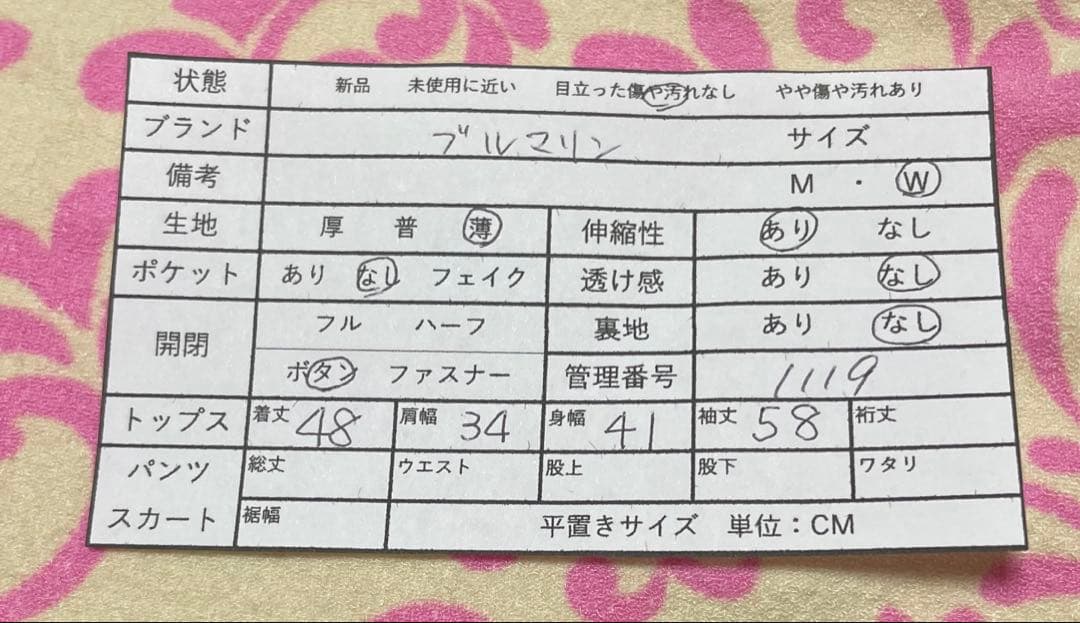 状態 新品 未使用に近い 目立った傷や汚れなし やや傷や汚れあり
ブランド ブルマリン サイズ
備考 M ・ W
生地 厚 普 薄 伸縮性 あり なし
ポケット あり なし フェイク 透け感 あり なし
開閉 フル ハーフ 裏地 あり なし
ボタン ファスナー 管理番号 1119
トップス 着丈 48 肩幅 34 身幅 41 袖丈 58 裄丈
パンツ 総丈 ウエスト 股上 股下 ワタリ
スカート 裾幅 平置きサイズ 単位：CM